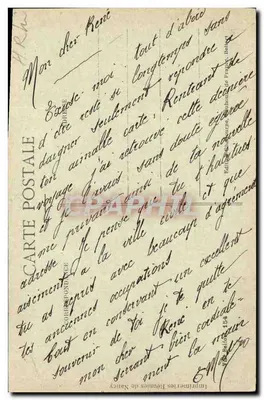 Mon cher René
Excuse moi tout d'abord
d'être resté si longtemps sans
daigner seulement répondre à
ton aimable carte. Rentrant de
voyage j'ai retrouvé cette dernière
et je l'avais sans doute égarée
me privant ainsi de ta nouvelle
adresse. Je pense que tu t'habitues
aisément à la ville et que
tu as repris avec beaucoup d'agrément
tes anciennes occupations
bait en conservant un excellent
souvenir de toi je te quitte
mon cher René en te
serrant bien cordiale-
ment la main
CARTE POSTALE
CORRESPONDANCE
Imprimeries Réunies de Nancy